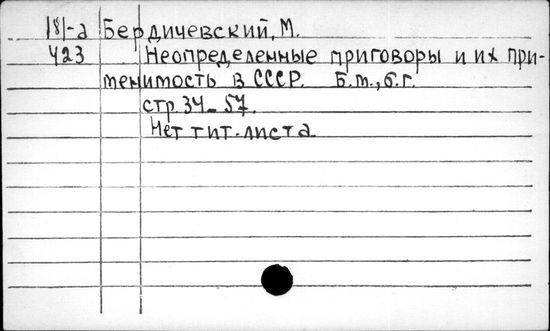 181-а Бердичевский, М.
423 Неопределенные приговоры и их при-
менимость в СССР. Б.м., б.г.
стр. 34-57.
Нет тит. листа